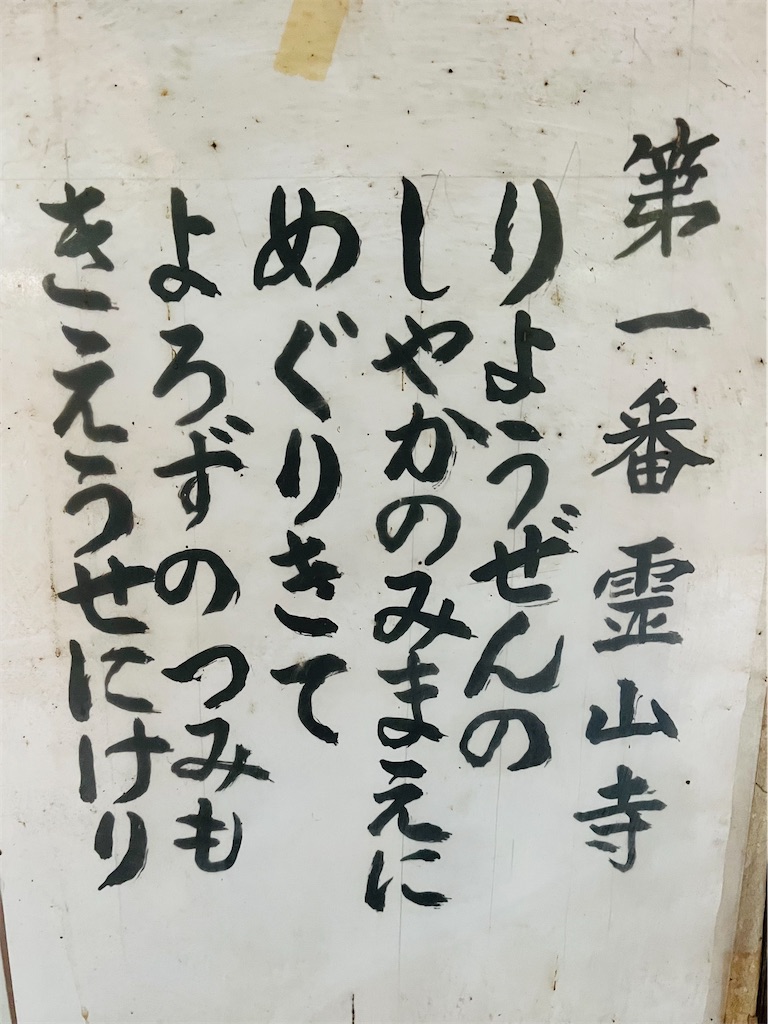 第一番 霊山寺
りようぜんの
しやかのみまえに
めぐりきて
よろずのつみも
きえうせにけり